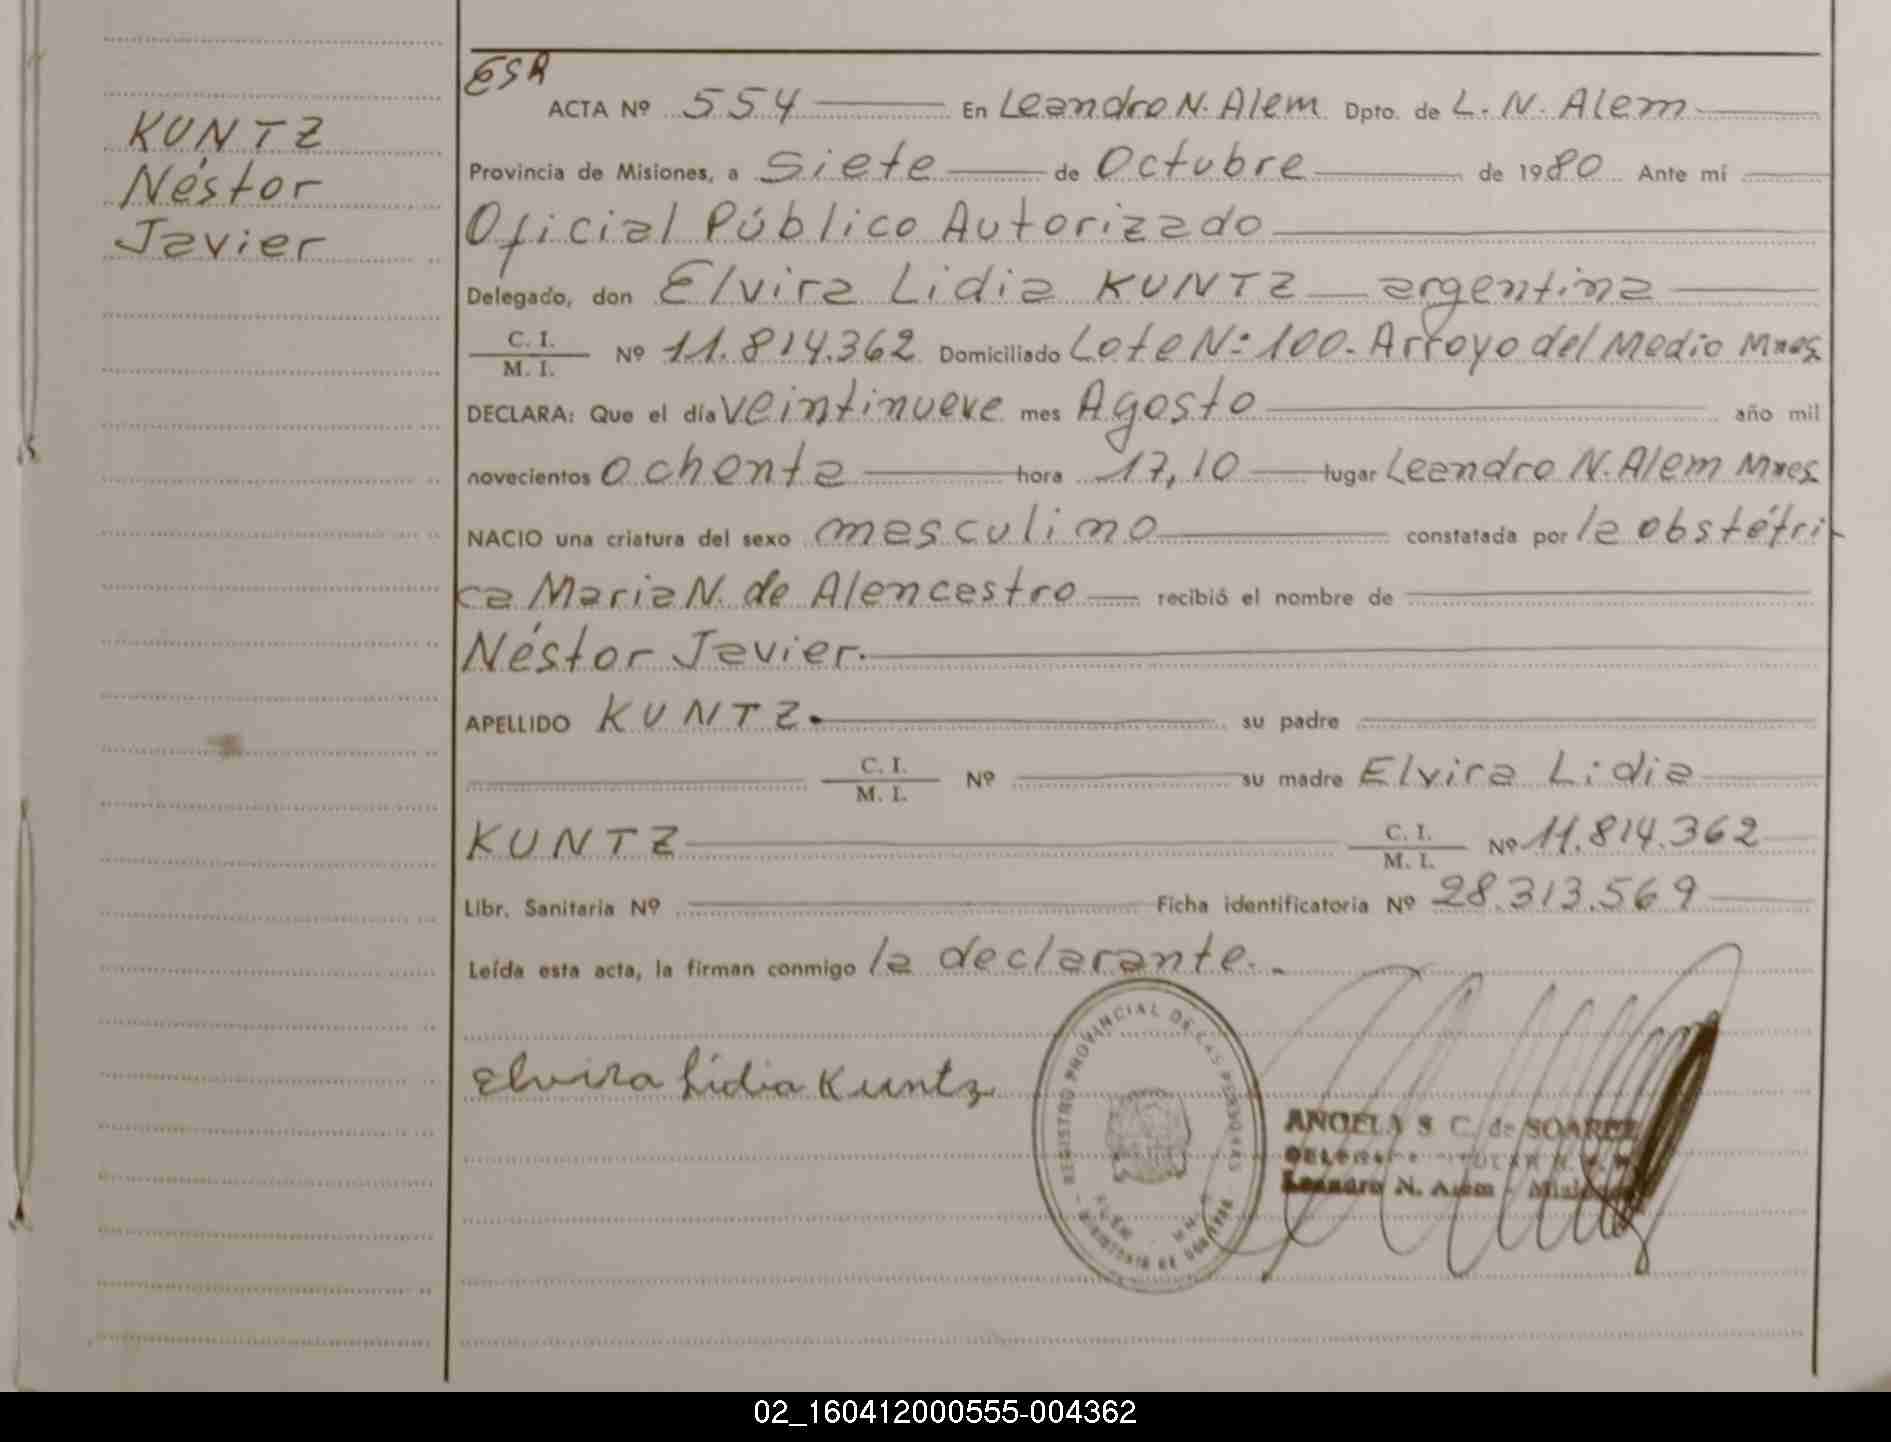 KUNTZ
Néstor
Javier
ESA
ACTA Nº 554 En Leandro N. Alem Dpto. de L. N. Alem
Provincia de Misiones, a Siete de Octubre de 1980 Ante mí
Oficial Público Autorizado
Delegado, don Elvira Lidia KUNTZ argentina
C. I.
M. I. Nº 11.814.362 Domiciliado Lote Nº 100. Arroyo del Medio Mnes
DECLARA: Que el día veintinueve mes Agosto año mil
novecientos Ochenta hora 17,10 lugar Leandro N. Alem Mnes
NACIO una criatura del sexo masculino constatada por la obstétri-
ca Maria N. de Alencastro recibió el nombre de
Néstor Javier.
APELLIDO KUNTZ. su padre
C. I.
M. I. Nº su madre Elvira Lidia
KUNTZ C. I.
M. I. Nº 11.814.362
Libr. Sanitaria Nº Ficha identificatoria Nº 28.313.569
Leída esta acta, la firman conmigo la declarante.
Elvira Lidia Kuntz
REGISTRO PROVINCIAL DE LAS PERSONAS
MINISTERIO DE GOBIERNO
ANGELA S. C. de SOAREZ
Leandro N. Alem - Misiones
02_160412000555-004362